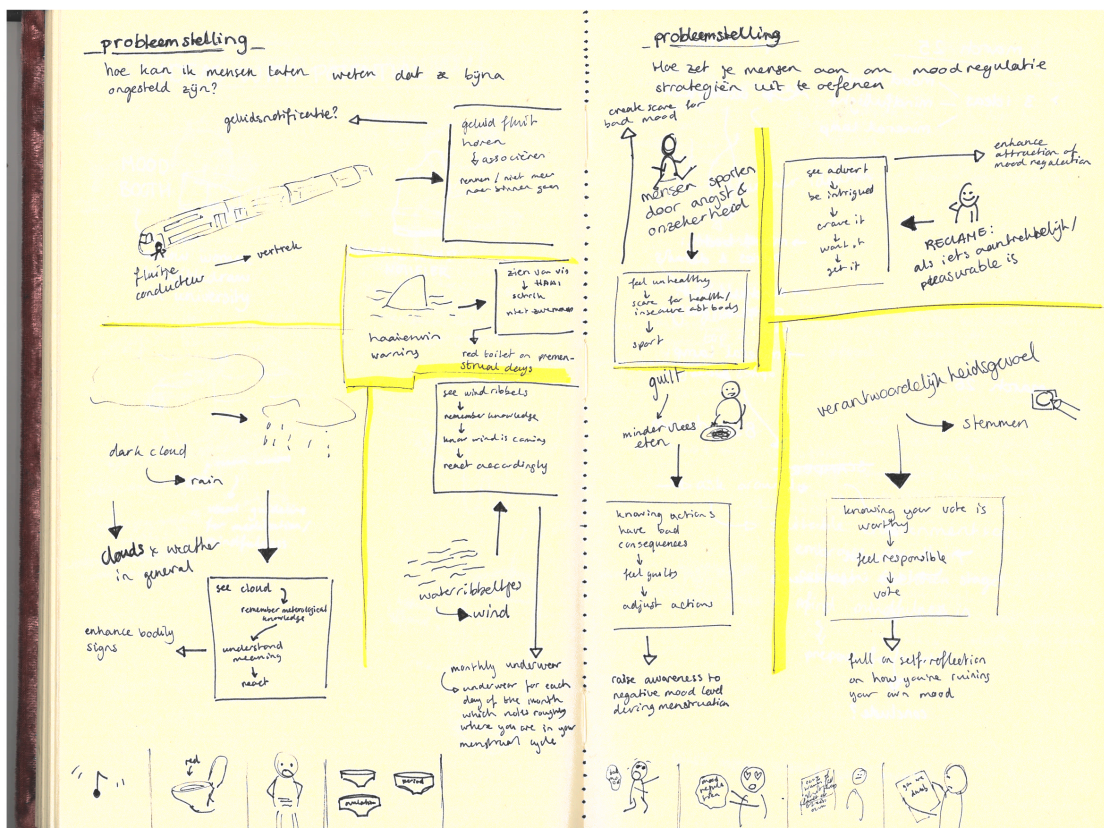 probleemstelling
hoe kan ik mensen laten weten dat ze bijna
ongesteld zijn?
geluidsnotificatie?
geluid fluit
horen
associëren
rennen / niet meer
naar binnen gaan
fluitje
conducteur
vertrek
haaienvin
warning
zien van vis
HAAI
schrik
niet zwemmen
red toilet on premen-
strual days
dark cloud
rain
clouds & weather
in general
see cloud
remember meterological
knowledge
understand
meaning
react
enhance bodily
signs
see windribbels
remember knowledge
know wind is coming
react accordingly
waterribbeltjes
wind
monthly underwear
underwear for each
day of the month
which notes roughly
where you are in your
menstrual cycle
red
ovulation
period
probleemstelling
Hoe zet je mensen aan om moodregulatie
strategiën uit te oefenen
create scare for
bad mood
mensen sporten
door angst &
onzekerheid
feel unhealthy
scare for health/
insecure abt body
sport
see advert
be intrigued
crave it
want it
get it
enhance
attraction of
mood regulation
RECLAME:
als iets aantrekkelijk/
pleasurable is
guilt
minder vlees
eten
knowing actions
have bad
consequences
feel guilts
adjust actions
raise awareness to
negative mood level
during menstruation
verantwoordelijkheidsgevoel
stemmen
knowing your vote is
worthy
feel responsible
vote
full on self-reflection
on how you're ruining
your own mood
mood